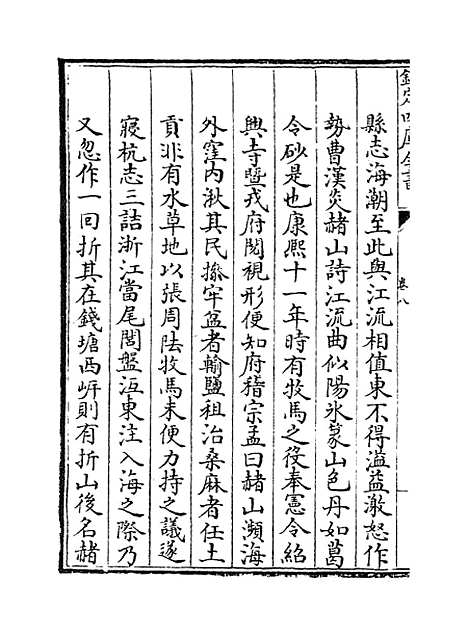 欽定四庫全書
卷八
縣志海潮至此與江流相值東不得溢益激怒作
勢曹漢炎赭山詩江流曲似陽氷篆山色丹如葛
令砂是也康熙十一年時有牧馬之役奉憲令紹
興寺暨戎府閱視形便知府稽宗孟曰赭山瀕海
外窪内湫其民搡牢盆者輸鹽祖治桑麻者任土
貢非有水草地以張周阹牧馬未便力持之議遂
寢杭志三詰浙江當尾閭盤沍東注入海之際乃
又忽作一回折其在錢塘西㟁則有折山後名赭